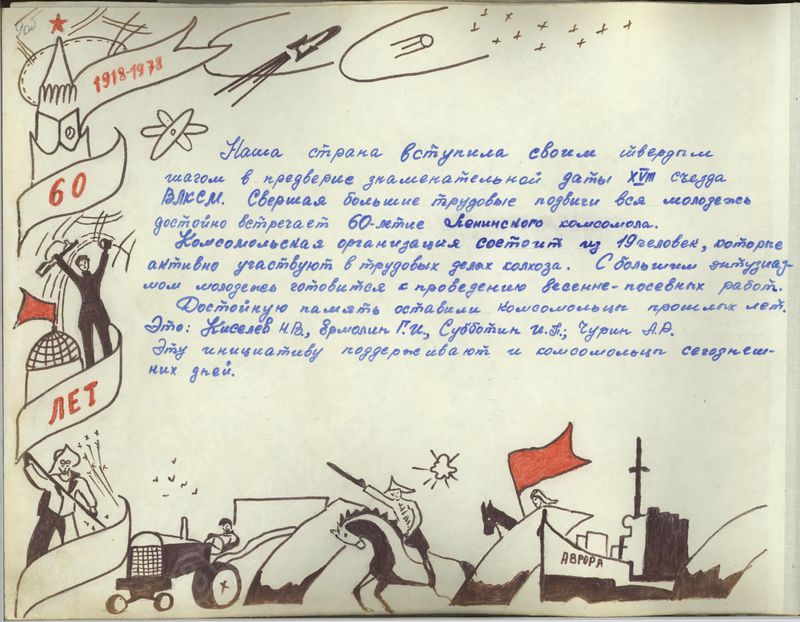 1918-1978
60
ЛЕТ
Наша страна вступила своим твердым
шагом в предверие знаменательной даты XVIII съезда
ВЛКСМ. Свершая большие трудовые подвиги вся молодежь
достойно встречает 60-летие Ленинского комсомола.
Комсомольская организация состоит из 19 человек, которые
активно участвуют в трудовых делах колхоза. С большим энтузиаз-
мом молодежь готовится к проведению весенне-посевных работ.
Достойную память оставили комсомольцы прошлых лет.
Это: Киселев Н.В., Ермолин Г.И., Субботин И.А.; Чурин А.Р.
Эту инициативу поддерживают и комсомольцы сегоднеш-
них дней.
АВРОРА